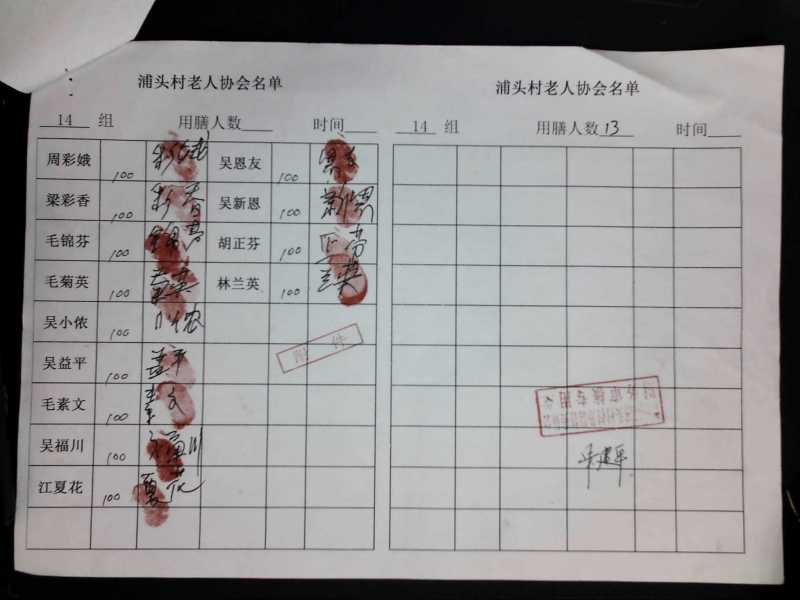 浦头村老人协会名单
14 组 用膳人数 时间
周彩娥 100 彩娥 吴恩友 100 恩友
梁彩香 100 彩香 吴新恩 100 新恩
毛锦芬 100 锦芬 胡正芬 100 正芬
毛菊英 100 菊英 林兰英 100 兰英
吴小侬 100 小侬
吴益平 100 益平
毛素文 100 素文
吴福川 100 福川
江夏花 100 夏花
附件
浦头村老人协会名单
14 组 用膳人数 13 时间